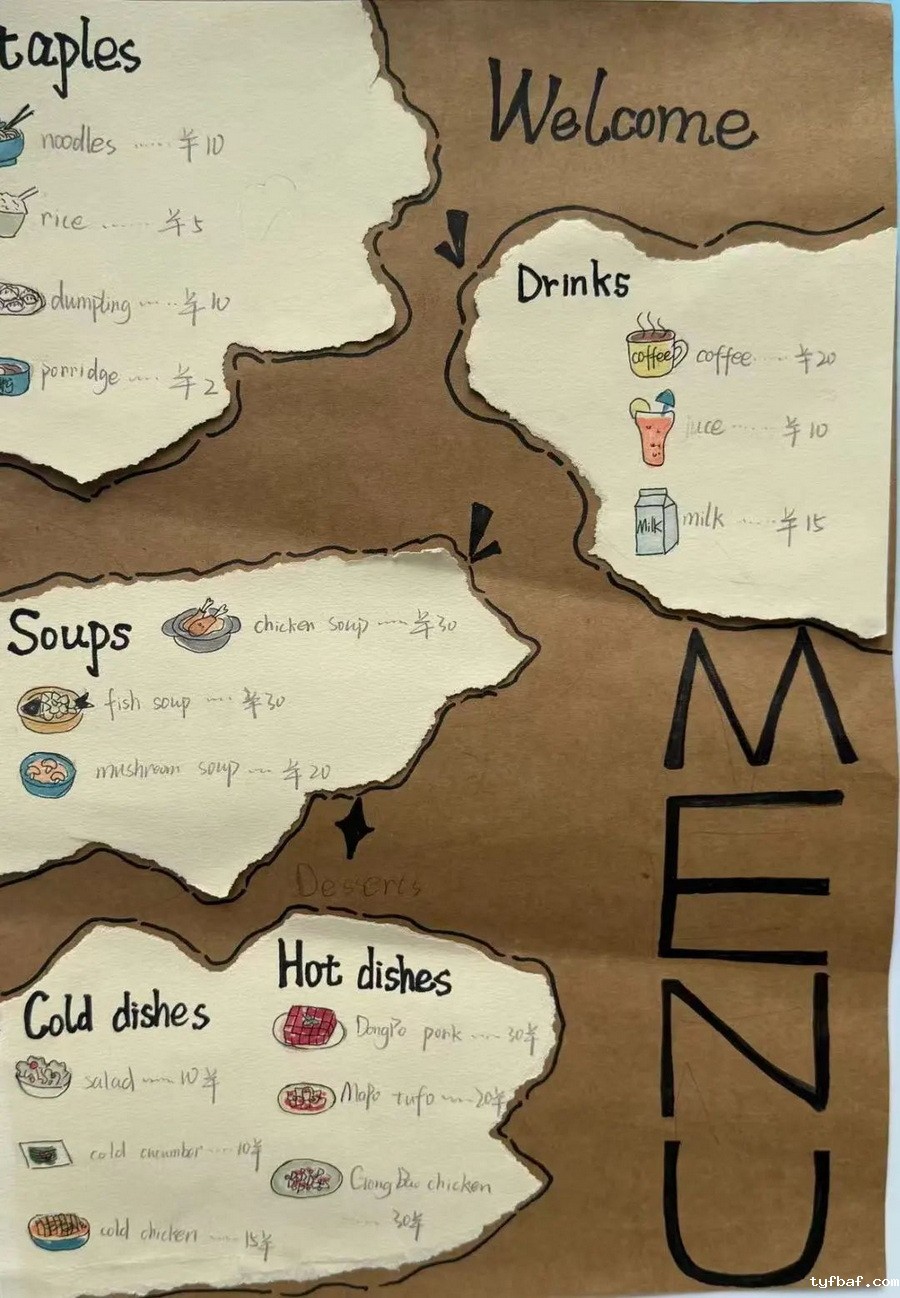 taples
noodles ...... ¥10
rice ....... ¥5
dumpling ...... ¥10
porridge .... ¥2
Welcome
Drinks
coffee
coffee ...... ¥20
juce ....... ¥10
Milk
milk ...... ¥15
Soups
chicken soup ---- ¥30
fish soup ---- ¥30
mushroom soup --- ¥20
Desserts
Cold dishes
salad ---- 10¥
cold cucumber ---- 10¥
cold chicken ---- 15¥
Hot dishes
DongPo pork ---- 30¥
MaPo tufo ---- 20¥
Gong Bao chicken
---- 30¥
MENU
tyfbaf.com